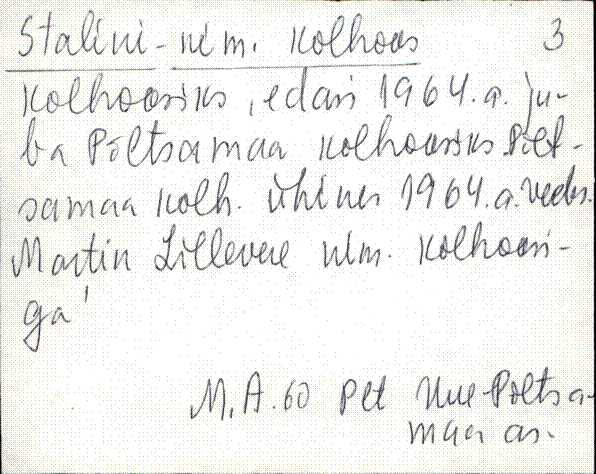 Stalini-nim. kolhoos 3
kolhoosiks, edasi 1964.a. ju-
ba Põltsamaa kolhoosiks. Põlt-
samaa kolh. ühines 1964.a. veebr.
Martin Lillevere nim. kolhoosi-
ga!
M.A. 60 Plt Uue-Põltsa-
maa as.